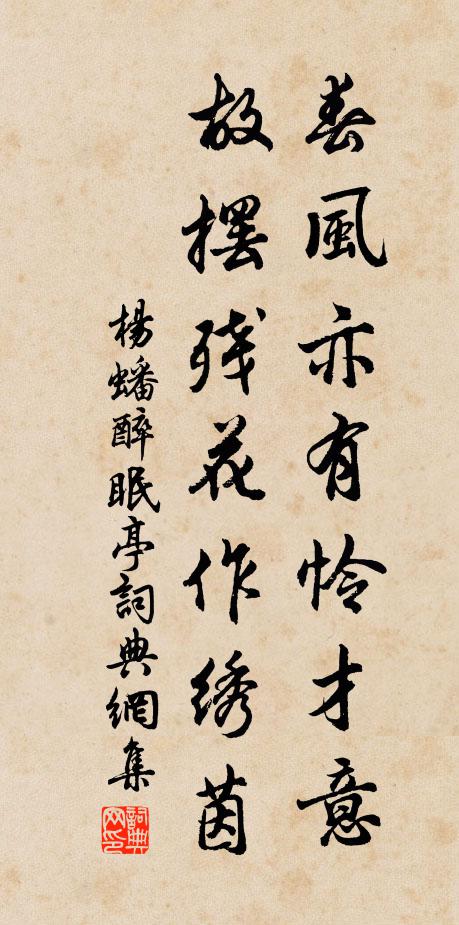 春風亦有怜才意
故擺残花作绣茵
楊蟠醉眠亭詞典網集
詞典网印